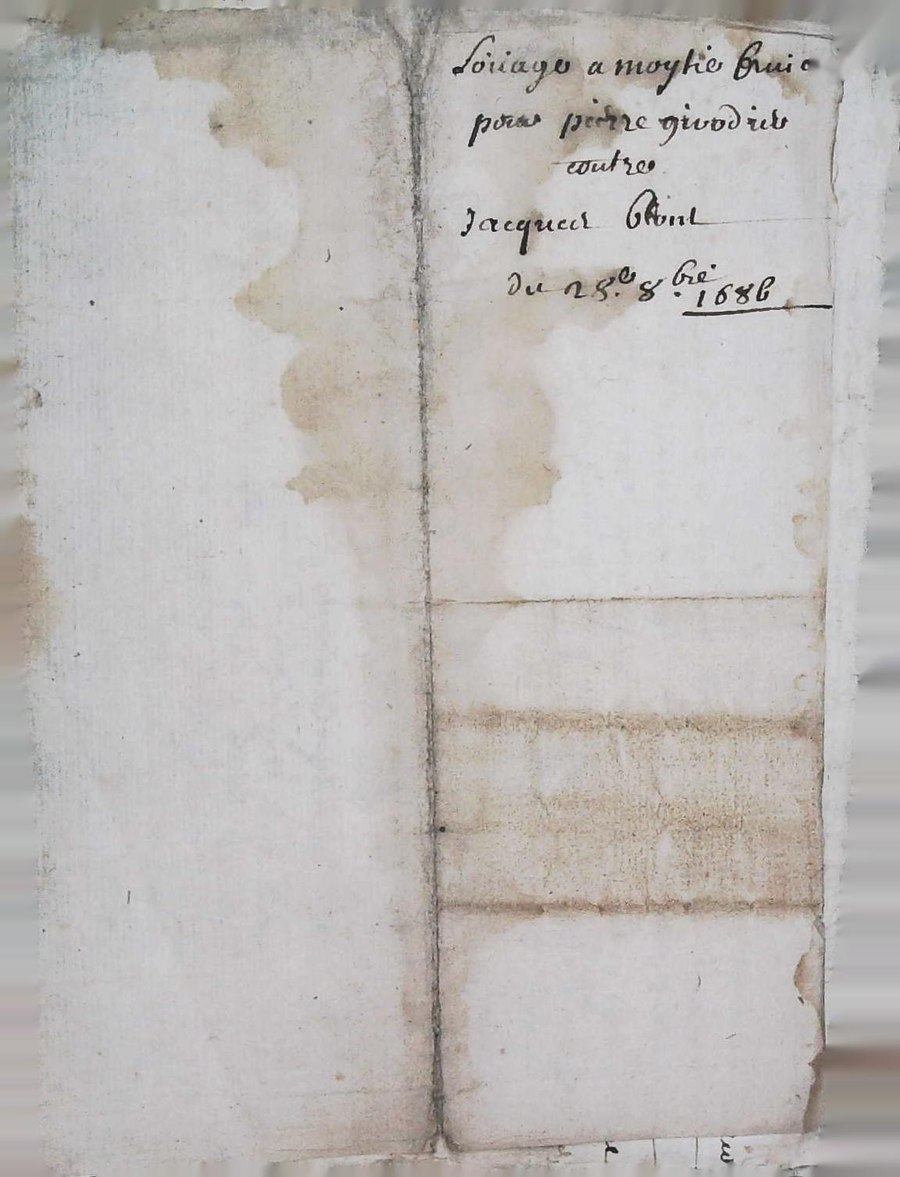 Loüage a moytié fruic
pour pierre givodiere
contre
Jacques
du 28.e 8.bre 1686